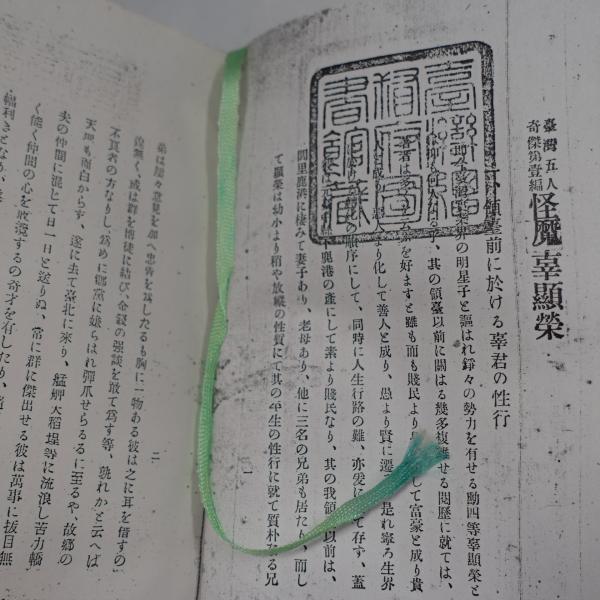 臺灣五人
奇傑第壹編
怪魔辜顯榮
領臺前に於ける辜君の性行
界の明星子と謳はれ錚々の勢力を有せる勳四等辜顯榮と
其の領臺以前に關はる幾多複雜せる閱歷に就ては、
著者は多
を好まずと雖も而も賤民より
して富豪と成り貴
人と
り化して善人と成り、愚より賢に遷
是れ寧ろ生界
の順序にして、同時に人生行路の難、亦爰に
て存す、蓋
鹿港の產にして素より賤民なり、其の我領
以前は、
間里鹿港に棲みて妻子あり、老母あり、他に三名の兄弟も居たり、而し
て顯榮は幼少より稍や放縱の性質にて其の平生の性行に就て質朴なる兄
一
臺灣總督府圖書館藏
弟は屢々意見を加へ忠告を爲したるも胸に一物ある彼は之に耳を借すの
遑無く、或は群を博徒に結び、金錢の强談を敢て爲す等、孰れかと云へば
不良者の方なりし、爲めに鄉黨に嫌はれ彈爪せらるるに至るや、故鄉の
天地も面白からず、遂に去て臺北に來り、艋舺大稻埕等に流浪し苦力轎
夫の仲間に混じて日一日と送りぬ、常に群に傑出せる彼は萬事に拔目無
く能く仲間の心を收攬するの奇才を有したり、
二